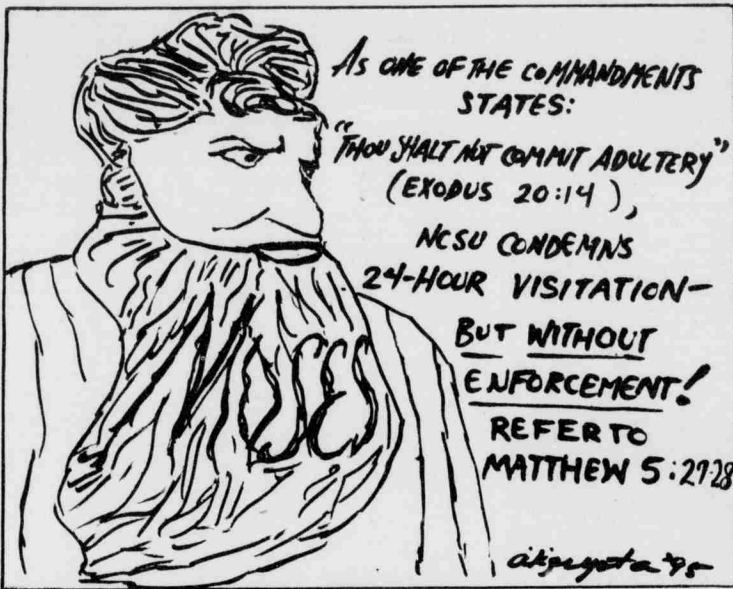 AS ONE OF THE COMMANDMENTS
STATES:
"THOU SHALT NOT COMMIT ADULTERY"
(EXODUS 20:14),
NCSU CONDEMNS
24-HOUR VISITATION-
BUT WITHOUT
ENFORCEMENT!
REFER TO
MATTHEW 5:27-28
MOSES
'95